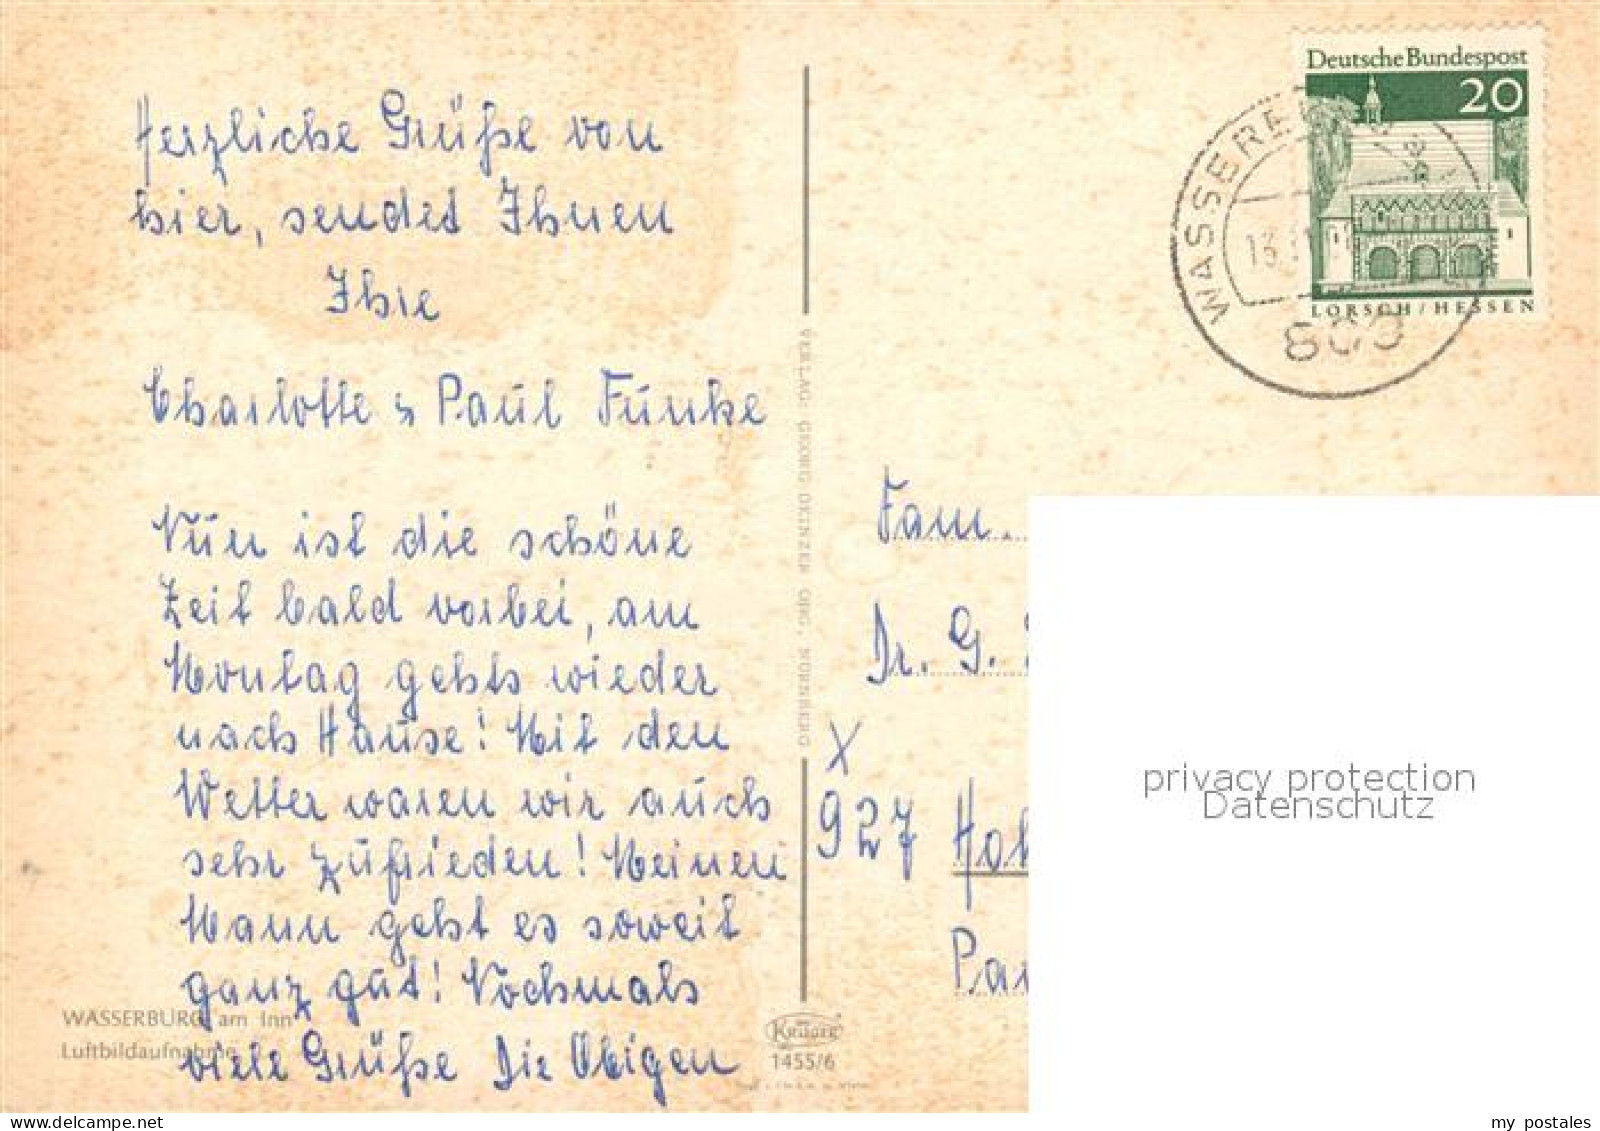 Herzliche Grüße von
hier, sendet Ihnen
Ihre
Charlotte u Paul Funke
Nun ist die schöne
Zeit bald vorbei, am
Montag gehts wieder
nach Hause! Mit den
Wetter waren wir auch
sehr zufrieden! Meinen
Mann geht es soweit
ganz gut! Nochmals
viele Grüße Die Obigen
WASSERBURG am Inn
Luftbildaufnahme
VERLAG: GEORG DEINZER OHG, NÜRNBERG
KRÜGER
1455/6
Deutsche Bundespost
20
LORSCH/HESSEN
WASSERBURG
809
Fam.
Dr. G.
X
927 Hoh
privacy protection
Datenschutz
my postales
www.delcampe.net